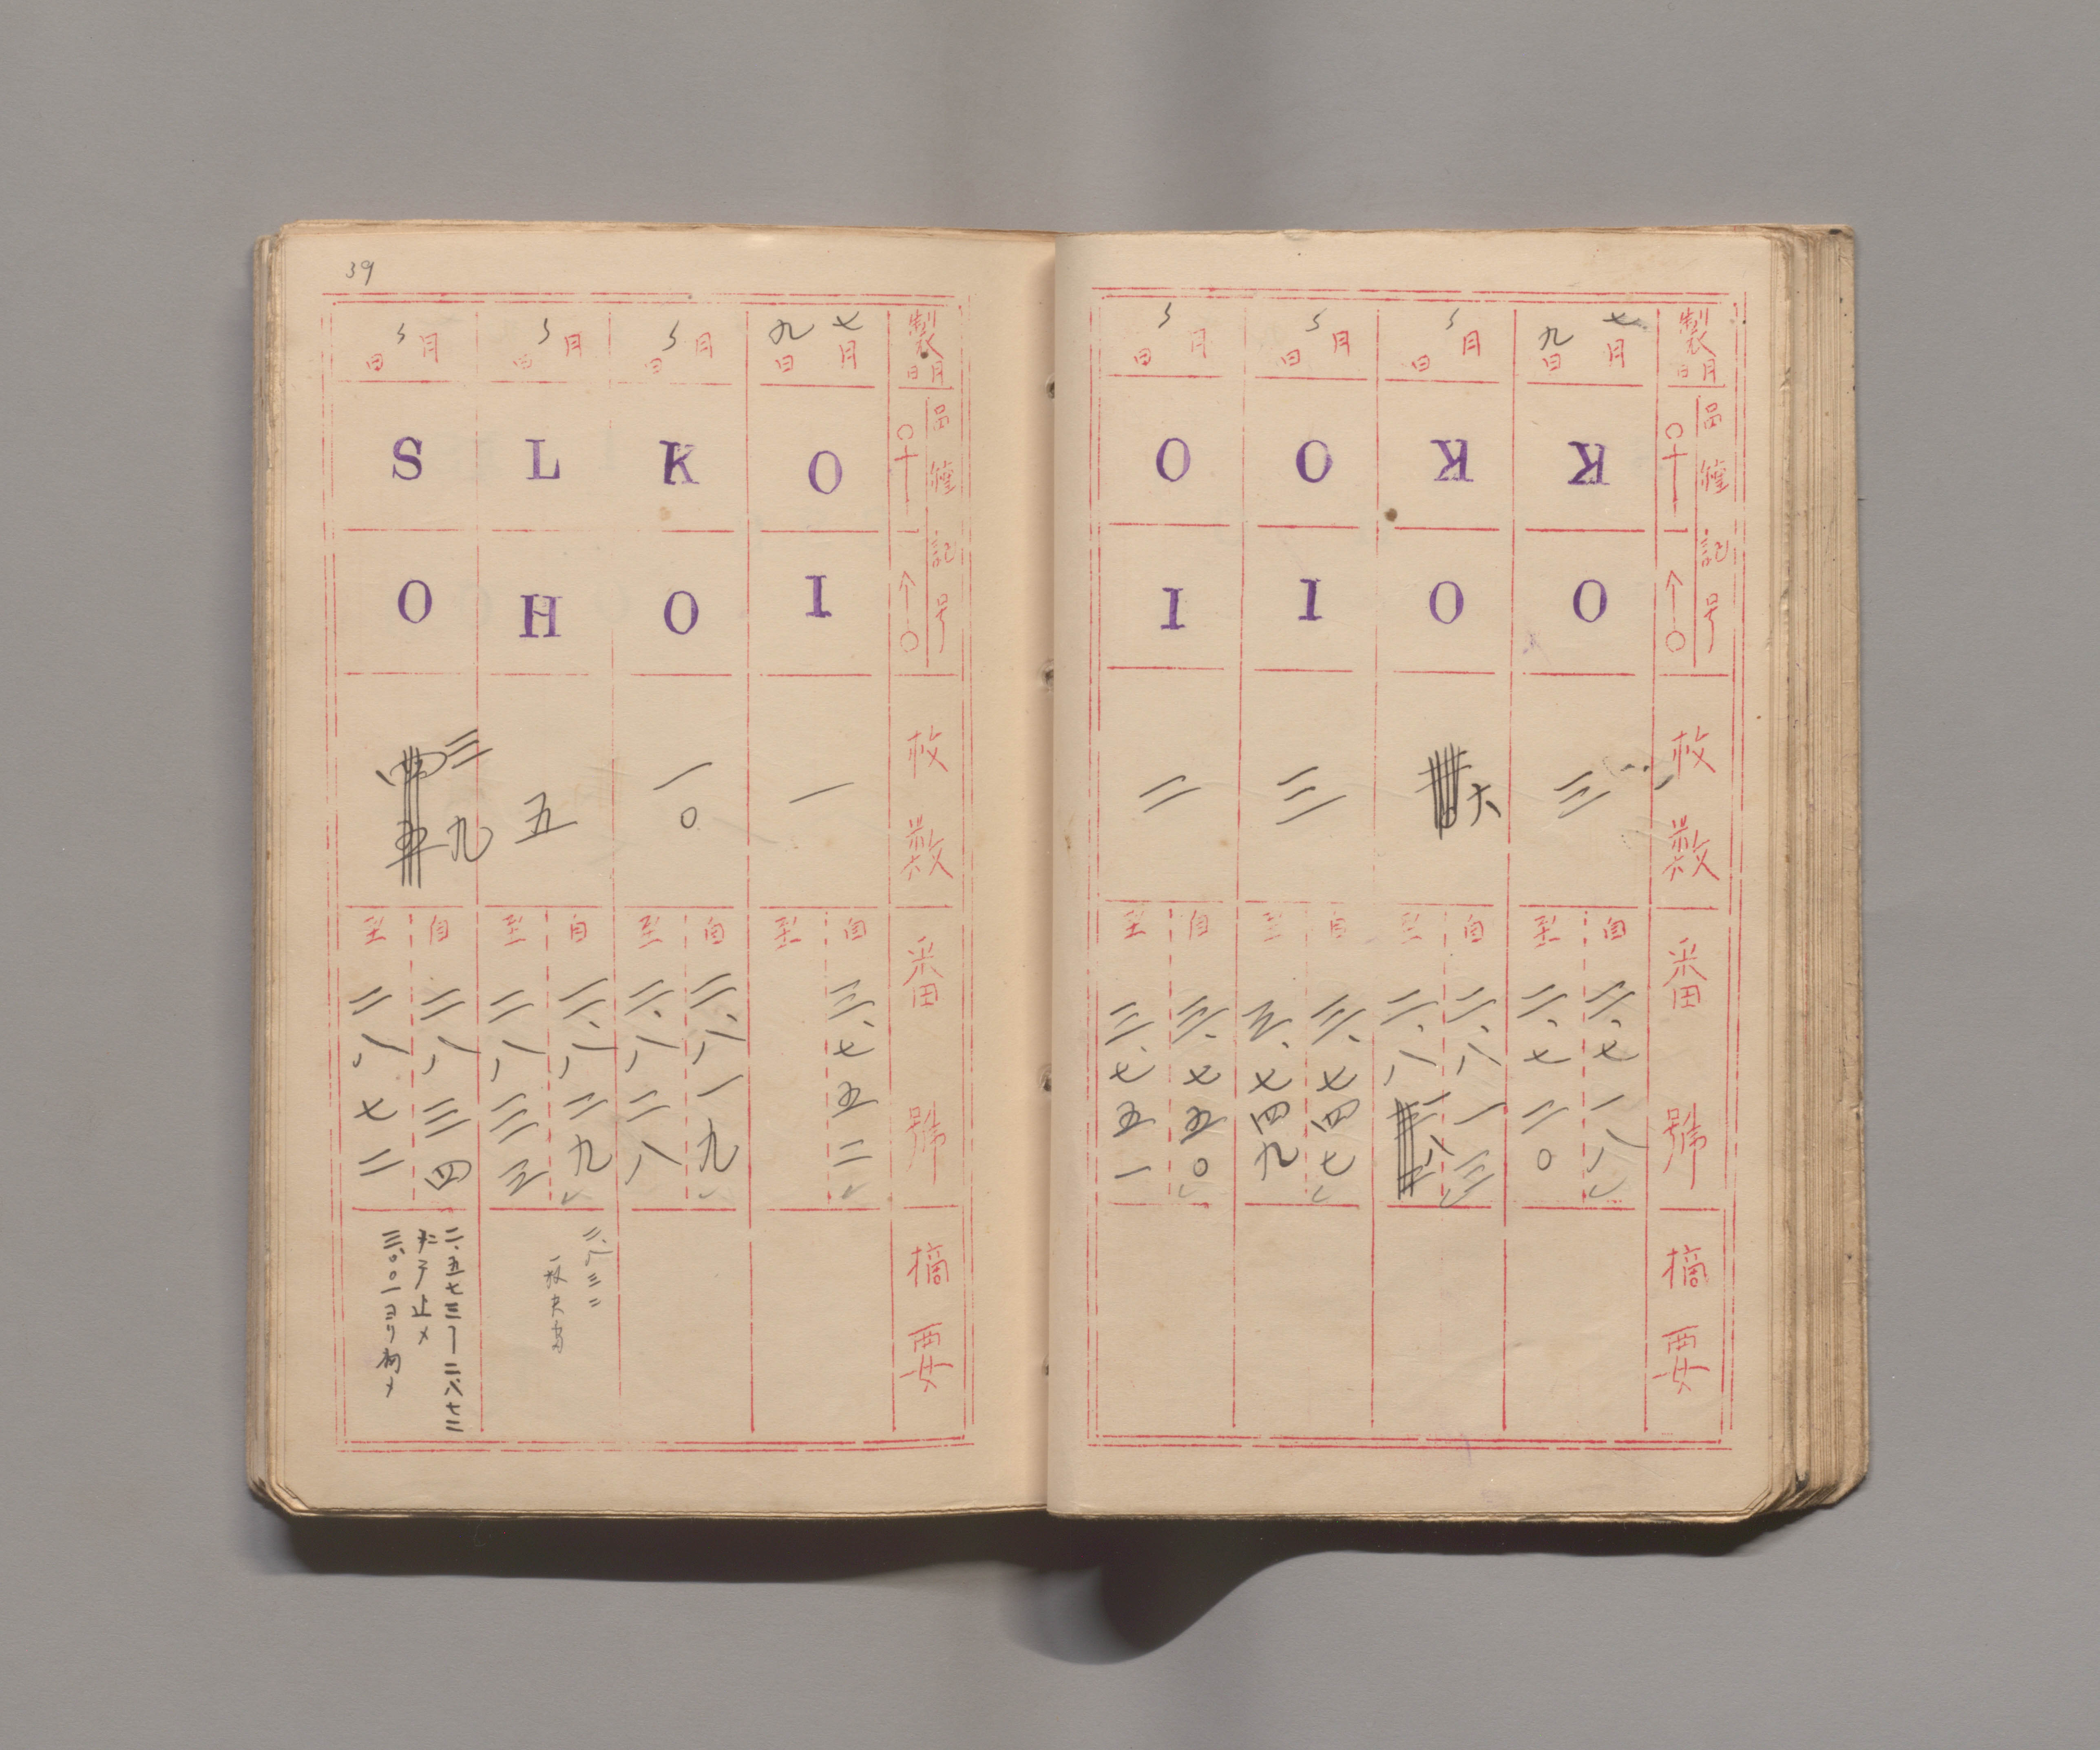 製月日 品種記号 枚数 番號 摘要
七月九日 K O 三 自二、七一八 至二、七二〇
月日 K O 六 自二、八一三 至二、八一八
月日 O I 三 自三、七四七 至三、七四九
月日 O I 二 自三、七五〇 至三、七五一
39
製月日 品種記号 枚数 番號 摘要
七月九日 O I 一 自三、七五二 至
月日 K O 一〇 自二、八一九 至二、八二八
月日 L H 五 自二、八二九 至二、八三三
二、八三二
一枚欠番
月日 S O 三九 自二、八三四 至二、八七二
二、五七三ー二、八七二
ニテ止メ
三、〇〇一ヨリ初メ